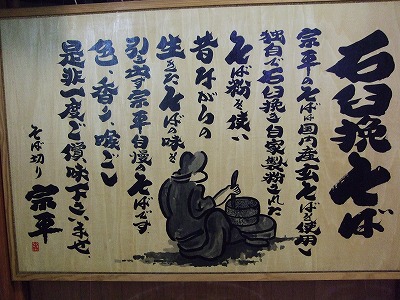 石臼挽そば
宗平のそばは国内産玄そばを使用し
独自で石臼挽き自家製粉された
そば粉を使い
昔ながらの
生きたそばの味を
引き出す宗平自慢のそばです。
色、香り、喉ごし
是非一度ご賞味下さいませ。
そば切り 宗平